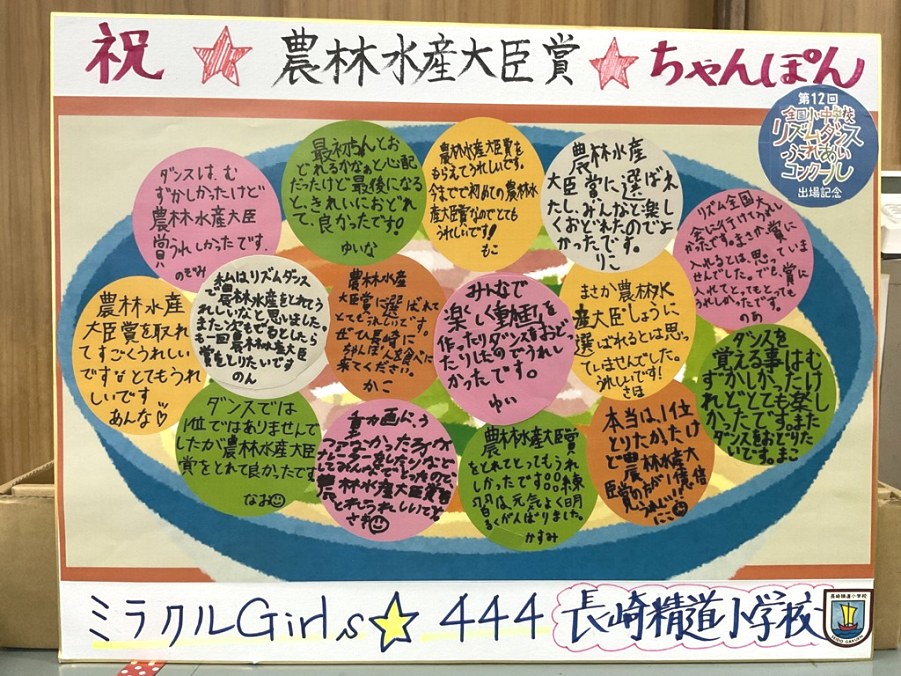 祝 ☆ 農林水産大臣賞 ☆ ちゃんぽん
第12回
全国小・中学校
リズムダンス
ふれあい
コンクール
出場記念
ダンスは、む
ずかしかったけど
農林水産大臣
賞うれしかったです.
のぞみ
最初ちゃんとお
どれるかなぁと心配
だったけど最後になる
と、きれいにおどれ
て良かったです!
ゆいな
農林水産大臣賞を
もらえてうれしいです。
今までで初めての農林水
産大臣賞なのでとても
うれしいです!
もこ
農林水産
大臣賞に選ばれ
たし、みんなと楽し
くおどれたのでよ
かったです。
りこ
リズム全国大
会に行けてうれし
かったです。まさか賞に
入れるとは、思っていま
せんでした。でも、賞に
入れてとってとっても
うれしかったです。
のあ
農林水産
大臣賞を取れ
てすごくうれしい
ですなとてもうれ
しいです
あんな♡
私はリズムダンス
で農林水産をとれてう
れしいなと思いました。
また次もでるとしたら
もう一回農林水産大臣
賞をとりたいです
のん
農林水産
大臣賞に選ばれて
とてもうれしいです。
ぜひ長崎に
ちゃんぽんを食べに
来てください。
かこ
みんなで
楽しく動画を
作ったりダンスをおど
ったりしたのでうれし
かったです。
ゆい
まさか農林水
産大臣しょうに
選ばれるとは思っ
ていませんでした。
うれしいです!
さほ
ダンスを
覚える事はむ
ずかしかったけ
れどとても楽し
かったです。また
ダンスをおどりた
いです。まこ
ダンスでは
1位ではありませんで
したが農林水産大臣
賞をとれて良かったです
なお☺
農林水産大臣賞
をとれてとってもうれ
しかったです
練
習は元気よく明
るくがんばりました。
かすみ
本当は、1位
とりたかったけ
ど農林水産大
臣賞のほうが1億倍
うれしい!!
にこ☺
ミラクルGirls☆444 長崎精道小学校
長崎精道小学校